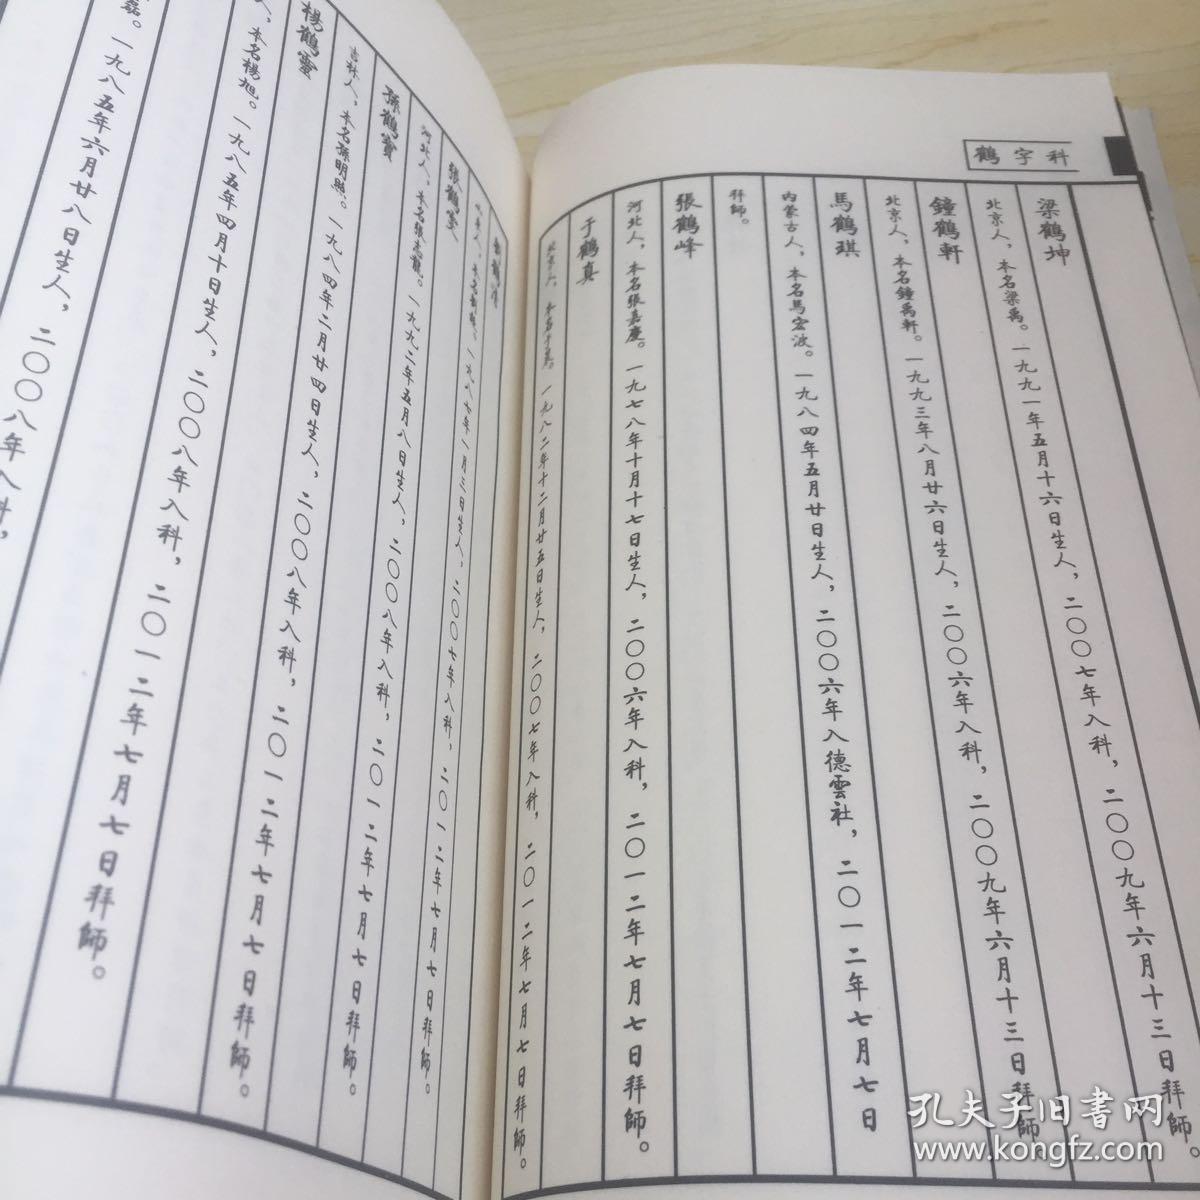 鶴字科
梁鶴坤
北京人，本名梁禹。一九九一年五月十六日生人，二〇〇七年入科，二〇〇九年六月十三日拜師。
鐘鶴軒
北京人，本名鐘禹軒。一九九三年八月廿六日生人，二〇〇六年入科，二〇〇九年六月十三日拜師。
馬鶴琪
内蒙古人，本名馬宏波。一九八四年五月廿日生人，二〇〇六年入德雲社，二〇一二年七月七日
拜師。
張鶴峰
河北人，本名張嘉慶。一九七八年十月十七日生人，二〇〇六年入科，二〇一二年七月七日拜師。
于鶴真
人，本名于 一九八二年十二月廿五日生人，二〇〇七年入科，二〇一二年七月七日拜師。
鶴
人，本名 一九八七年 月三日生人，二〇〇七年入科，二〇一二年七月七日拜師。
張鶴
河北人，本名張志龍。一九九二年五月八日生人，二〇〇八年入科，二〇一二年七月七日拜師。
孫鶴寶
吉林人，本名孫明照。一九八四年二月廿四日生人，二〇〇八年入科，二〇一二年七月七日拜師。
楊鶴靈
人，本名楊旭。一九八五年四月十日生人，二〇〇八年入科，二〇一二年七月七日拜師。
磊。一九八五年六月廿八日生人，二〇〇八年入科，二〇一二年七月七日拜師。
二〇〇八年入科，
孔夫子旧書网
www.kongfz.com